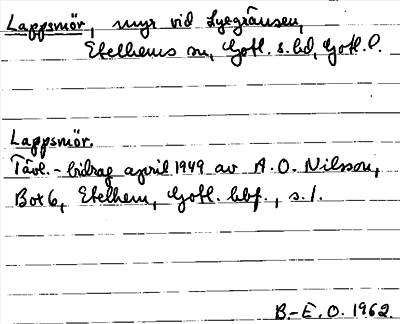 Lappsmör, myr vid Lyegränsen,
Etelhems sn, Gotl. s. hd, Gotl. l.
Lappsmör.
Tävl.-bidrag april 1949 av A. O. Nilsson,
Box 6, Etelhem, Gotl. bbf., s. 1.
B.-E. O. 1962.